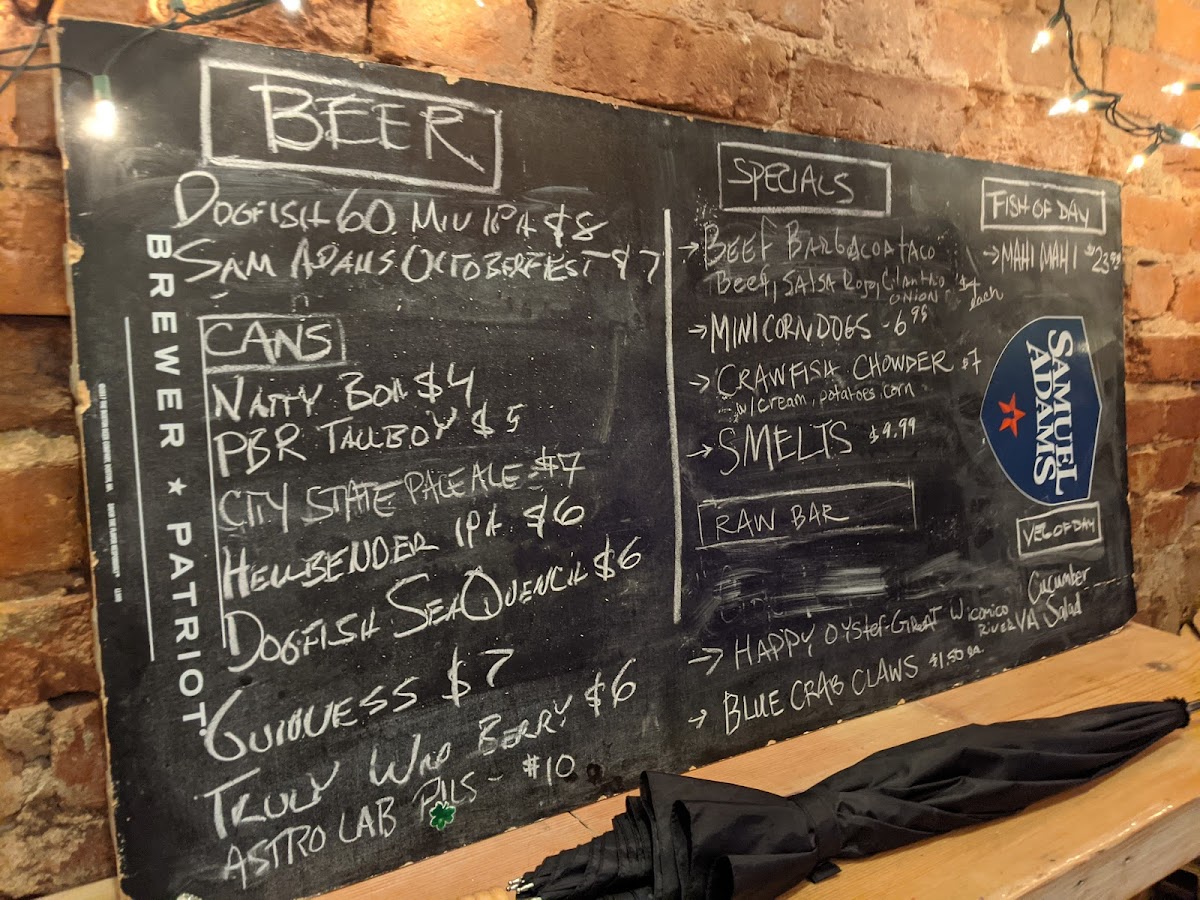 BEER
DOGFISH 60 MIN IPA $8
SAM ADAMS OCTOBERFEST $7
CANS
NATTY BOH $4
PBR TALLBOY $5
CITY STATE PALE ALE - $7
HELLBENDER IPA $6
DOGFISH SEAQUENCH $6
GUINNESS $7
TRULY WILD BERRY $6
ASTRO LAB PILS - $10
BREWER ★ PATRIOT
SPECIALS
→ BEEF BARBACOA TACO
Beef, SALSA Roja, Cilantro
ONION $4
each
→ MINI CORN DOGS - 6 95
→ CRAWFISH CHOWDER $7
w/ cream, potatoes, corn
→ SMELTS $9.99
RAW BAR
→ HAPPY OYSTER - GREAT Wicomico
RIVER VA
→ BLUE CRAB CLAWS $1.50 ea.
FISH OF DAY
→ MAHI MAHI $23 99
SAMUEL
ADAMS
VEG OF DAY
Cucumber
Salad